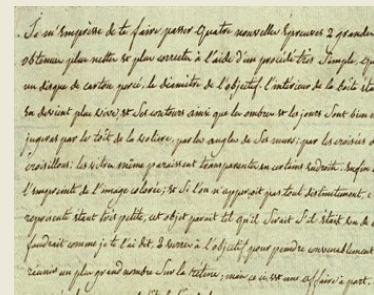 Je m'empresse de te faire passer quatre nouvelles Epreuves 2 grandes
obtenues plus nettes et plus correctes à l'aide d'un procédé très simple, qui
un disque de carton percé, le diamètre de l'objectif. l'intérieur de la boîte étant
En devient plus vive, et Ses contours ainsi que les ombres et les jours Sont bien
jugeras par le toît de la volière, par les angles de Ses murs; par les croisées
croisillons: les vitres même paraissent transparentes en certains endroits. Enfin
l'empreinte de l'image colorée; et Si l'on n'apperçoit pas tout distinctement, c
représenté étant très petite, cet objet paraît tel qu'il Serait S'il était vu de
faudrait comme je te l'ai dit, 2 verres à l'objectif pour peindre convenablement
réunir un plus grand nombre Sur la rétine; mais ceci est une affaire à part.